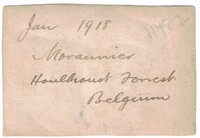 Jan 1918
Moraunier
Houlhoust Forrest
Belgium